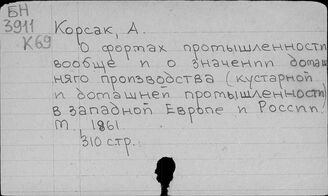 БН
3911
К69
Корсак, А.
О формах промышленности
вообще и о значении домаш
няго производства (кустарной
и домашней промышленности)
в западной Европе и России.
М., 1861.
310 стр.